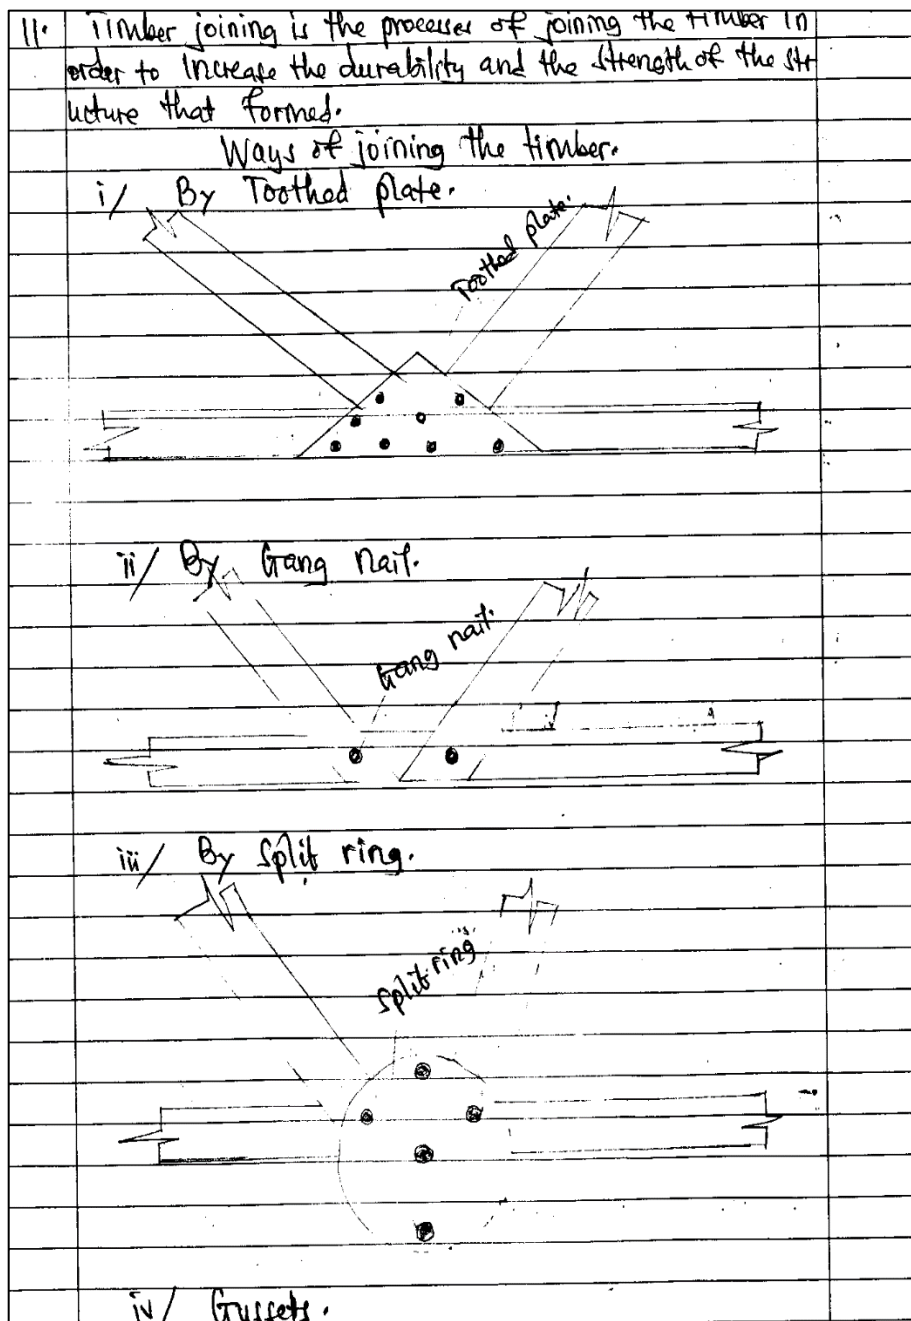 11. Timber joining is the processes of joining the timber in
order to increase the durability and the strength of the str
ucture that formed.
Ways of joining the timber.
i/ By Toothed plate.
Toothed plate.
ii/ By Gang nail.
Gang nail.
iii/ By split ring.
split ring
iv/ Gussets.